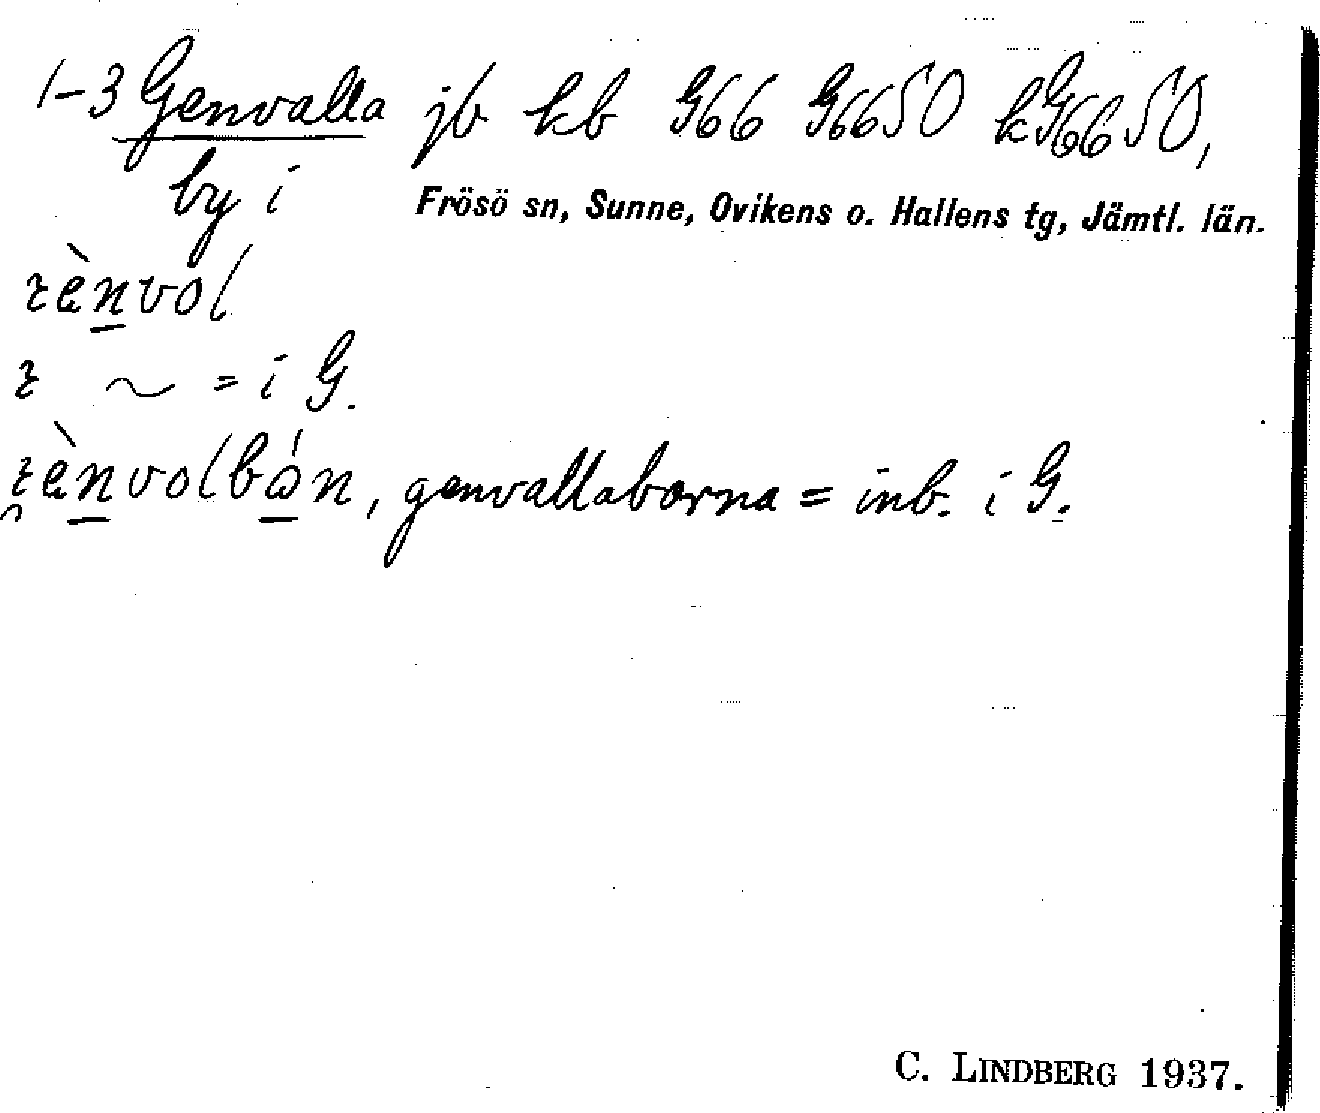 1-3 Genvalla jb kb G66 G6650 kG6650,
by i Frösö sn, Sunne, Ovikens o. Hallens tg, Jämtl. län.
= i G.
genvallaborna = inb. i G.
C. LINDBERG 1937.